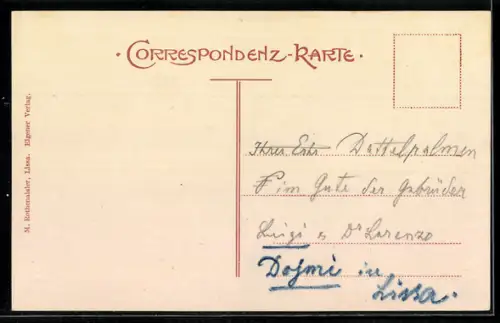 · CORRESPONDENZ-KARTE ·
M. Rothenstaler, Lissa. Eigener Verlag.
Dattelpalmen
im Gute der Gebrüder
Luigi & Dr Lorenzo
Dojmi in
Lissa.